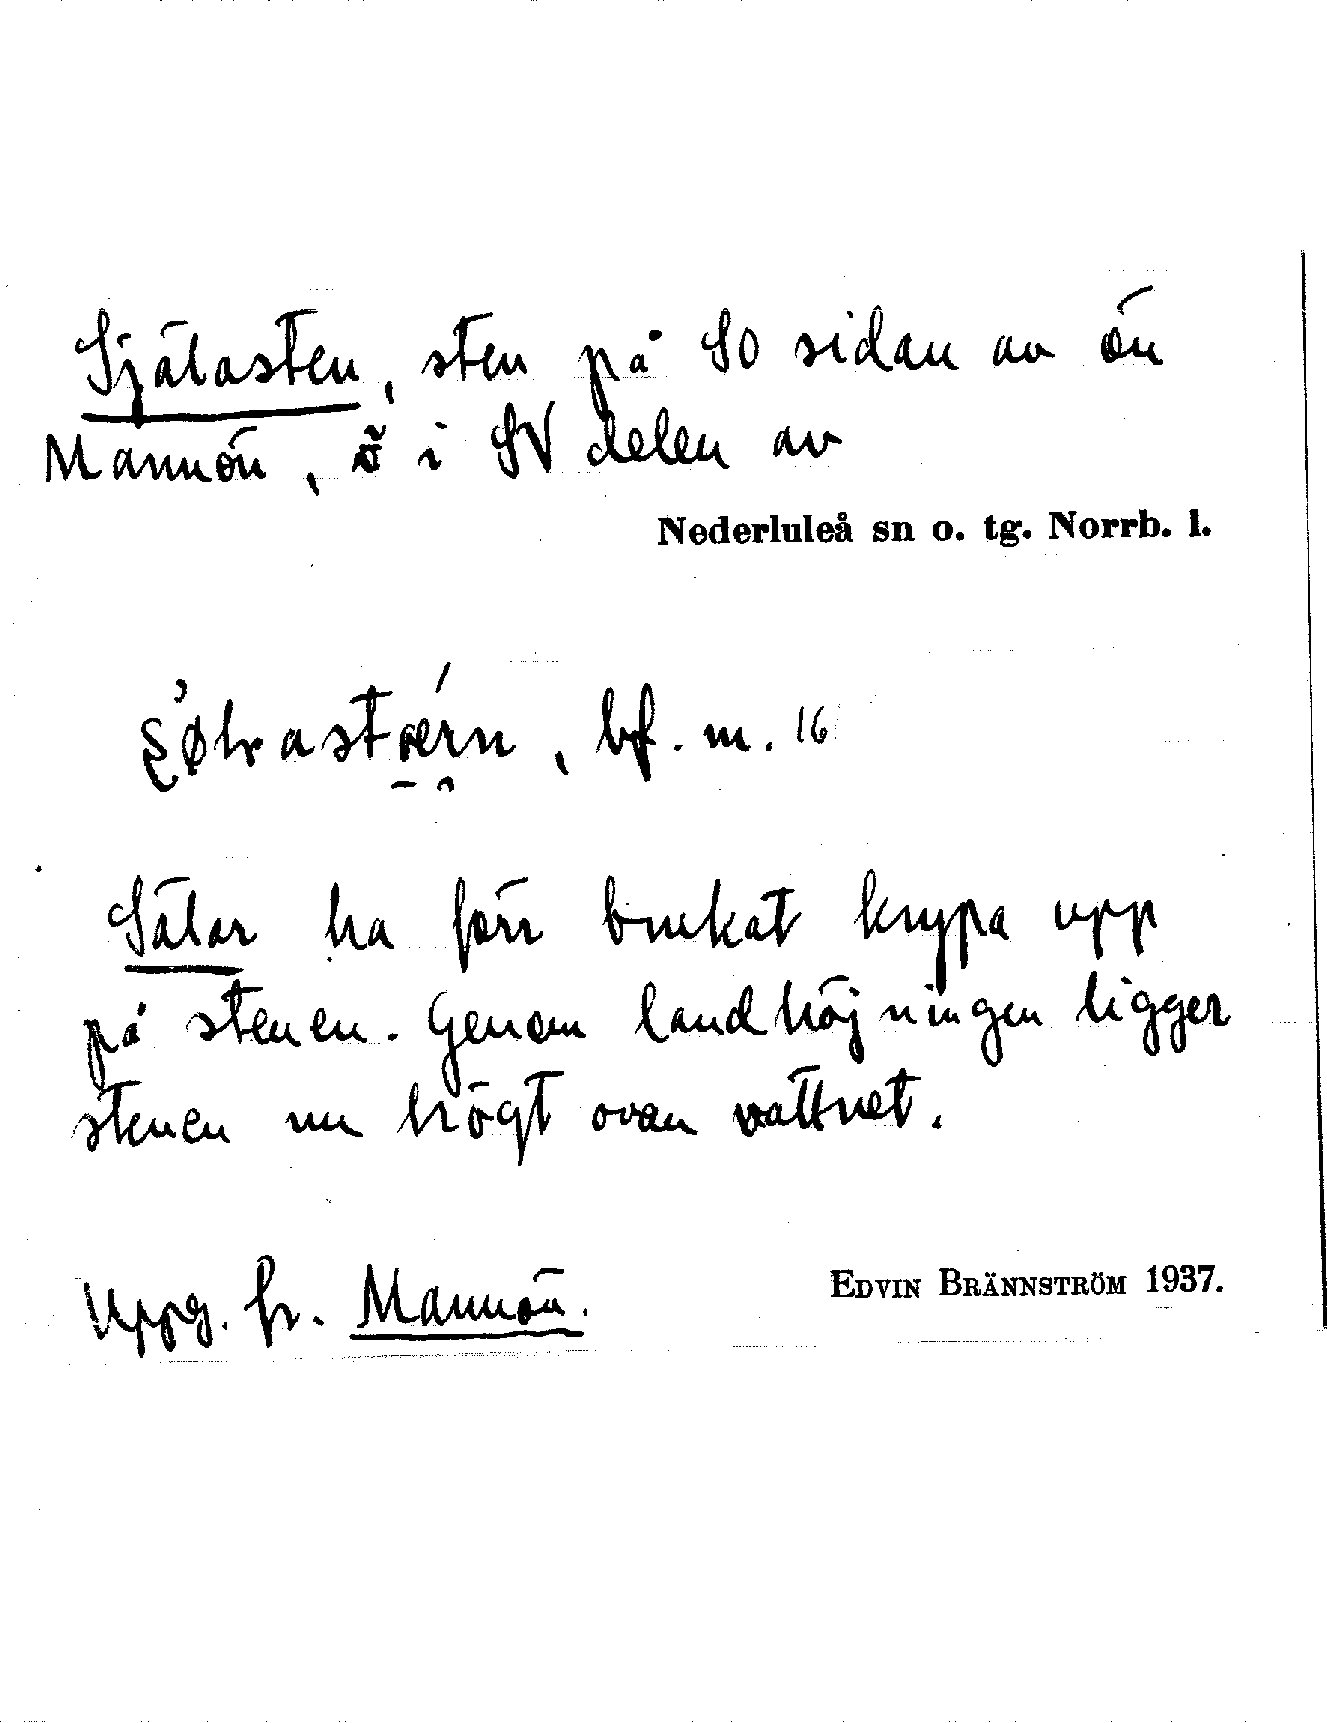 Själasten, sten på SO sidan av ön
Mannön, ö i SV delen av
Nederluleå sn o. tg. Norrb. l.
bf. m. 16
Sälar ha förr brukat krypa upp
på stenen. Genom landhöjningen ligger
stenen nu högt ovan vattnet.
Uppg. fr. Mannön.
EDVIN BRÄNNSTRÖM 1937.